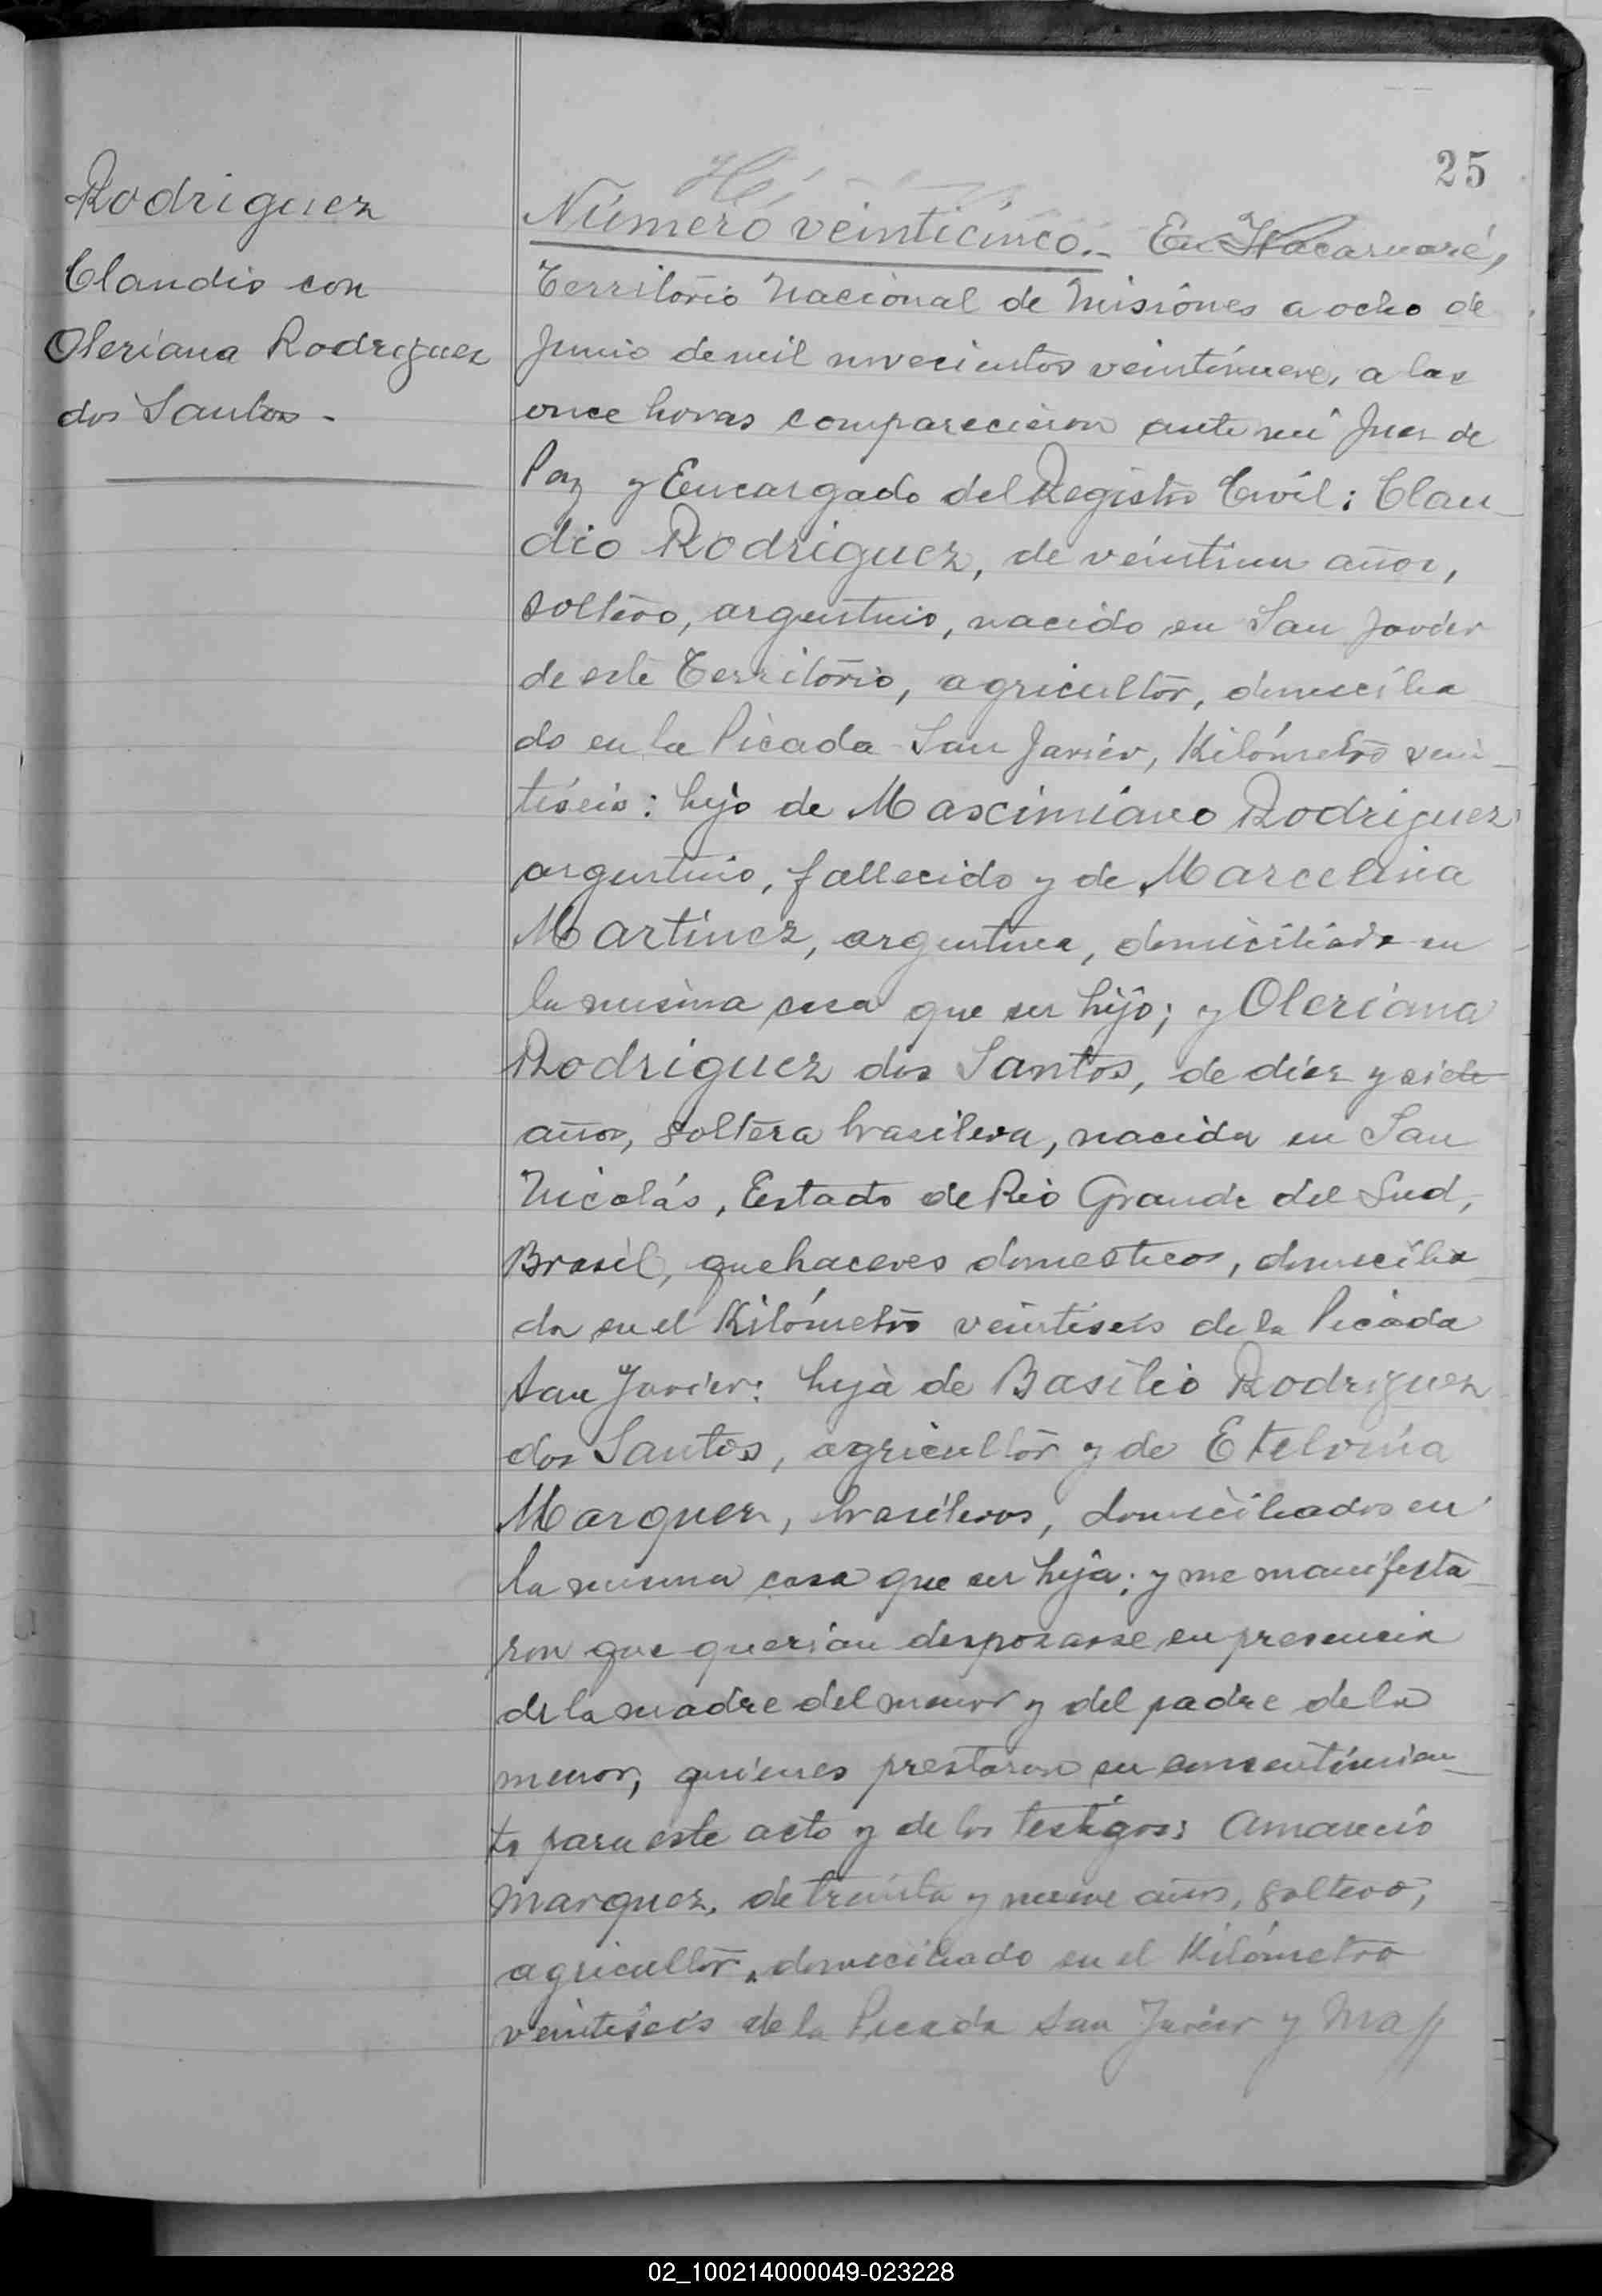 25
Rodriguez
Claudio con
Oleriana Rodriguez
dos Santos -
Número veinticinco.- En Itacaruaré,
Territorio Nacional de Misiones a ocho de
Junio de mil novecientos veintinueve, a las
once horas comparecieron ante mí Juez de
Paz y Encargado del Registro Civil: Clau-
dio Rodriguez, de veintiun años,
soltero, argentino, nacido en San Javier
de este Territorio, agricultor, domicilia
do en la Picada San Javier, Kilómetro vein-
tiseis: hijo de Mascimiano Rodriguez
argentino, fallecido y de Marcelina
Martinez, argentina, domiciliada en
la misma casa que su hijo; y Oleriana
Rodriguez dos Santos, de diez y siete
años, soltera brasilera, nacida en San
Nicolás, Estado de Rio Grande del Sud,
Brasil, quehaceres domesticos, domicilia
da en el Kilómetro veintiseis de la Picada
San Javier: hija de Basilio Rodriguez
dos Santos, agricultor y de Etelvina
Marquez, brasileros, domiciliados en
la misma casa que su hija; y me manifesta-
ron que querian desposarse en presencia
de la madre del menor y del padre de la
menor, quienes prestaron su consentimien-
to para este acto y de los testigos: Amancio
Marquez, de treinta y nueve años, soltero,
agricultor, domiciliado en el Kilómetro
veintiseis de la Picada San Javier y
02_100214000049-023228